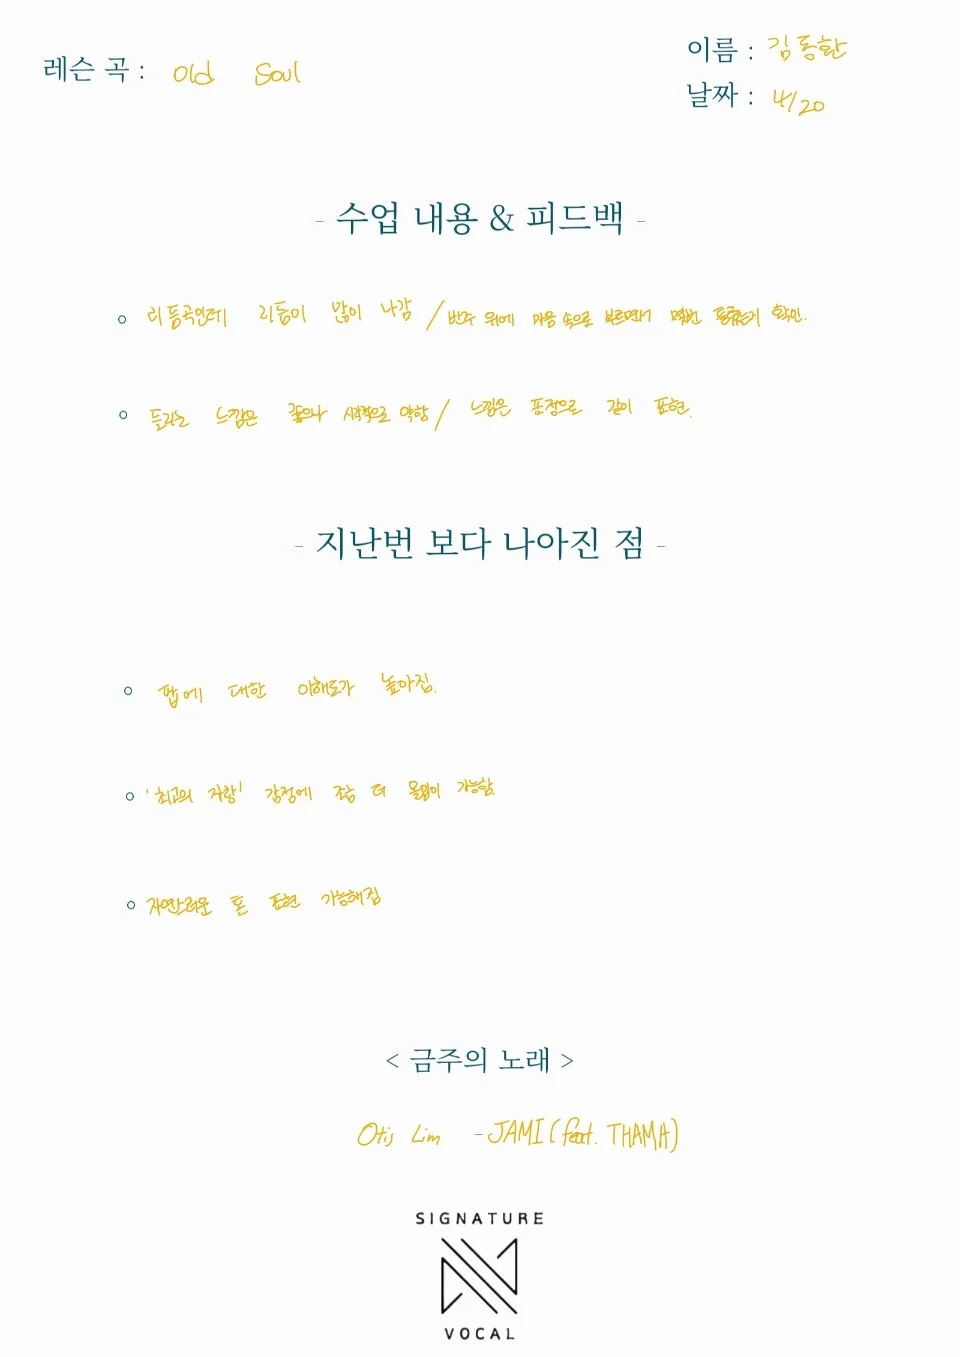 레슨 곡 : Old Soul
이름 : 김동환
날짜 : 4/20
- 수업 내용 & 피드백 -
리듬곡인데 리듬이 많이 나감 / 반주 위에 마음 속으로 부르면서 몇번 틀리는지 확인.
들리는 느낌은 좋으나 시각적으로 약함 / 느낌은 표정으로 같이 표현.
- 지난번 보다 나아진 점 -
팝에 대한 이해도가 높아짐.
'최고의 자랑' 감정에 조금 더 몰입이 가능함.
자연스러운 톤 표현 가능해짐
< 금주의 노래 >
Otis Lim - JAMI (feat. THAMA)
SIGNATURE
VOCAL